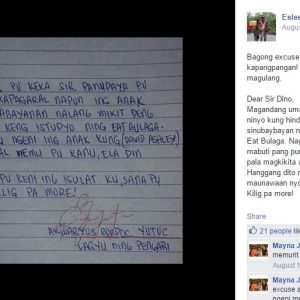 PU KEKA SIR PANUDAYA PU
KAPAGARAL NAPUN ING ANAK
KABAYANAN NALANG MIKIT DENG
KENG ISTUDYO NING EAT BULAGA.
NGENI ING ANAK KUNG (DAVID ASHLEY)
MEMU PU KANU, ELA DIN
PU KENI ING ISULAT KU, SANA PU
KILIG PA MORE!
BONDOC YUTUC
LAGYU NING PENGARI
Eslee
Augus
Bagong excuse
kapangpangan!
magulang.
Dear Sir Dino,
Magandang uma
ninyo kung hind
sinubaybayan n
Eat Bulaga. Nag
mabuti pang pun
pala magkikita a
Hanggang dito n
maunawaan nyo
Kilig pa more!
21 people lik
Mayna J
memurit
August 1
Mayna J
excuse a
ngeni me